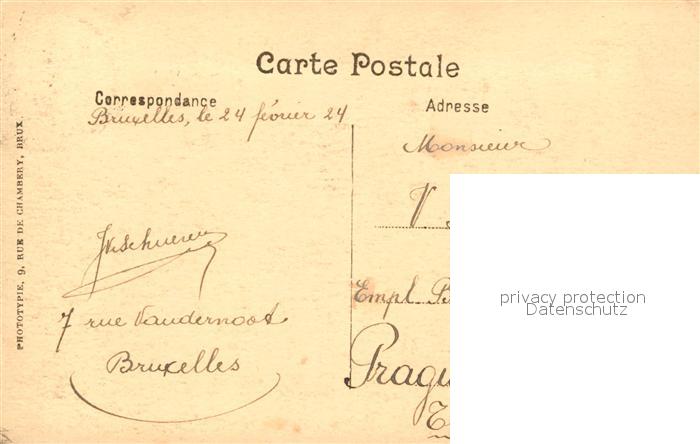 Carte Postale
Correspondance
Bruxelles, le 24 février 24
7 rue Vandernoot
Bruxelles
PHOTOTYPIE, 9, RUE DE CHAMBERY, BRUX.
Adresse
Monsieur
V.
Empl.
privacy protection
Datenschutz